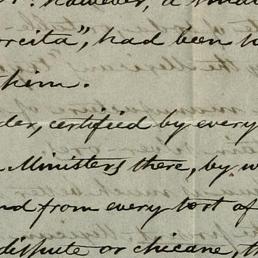 However, a small
orcita", had been
him.
der, certified by every
Ministers there, by
nd from every sort of
dispute or chicane, th